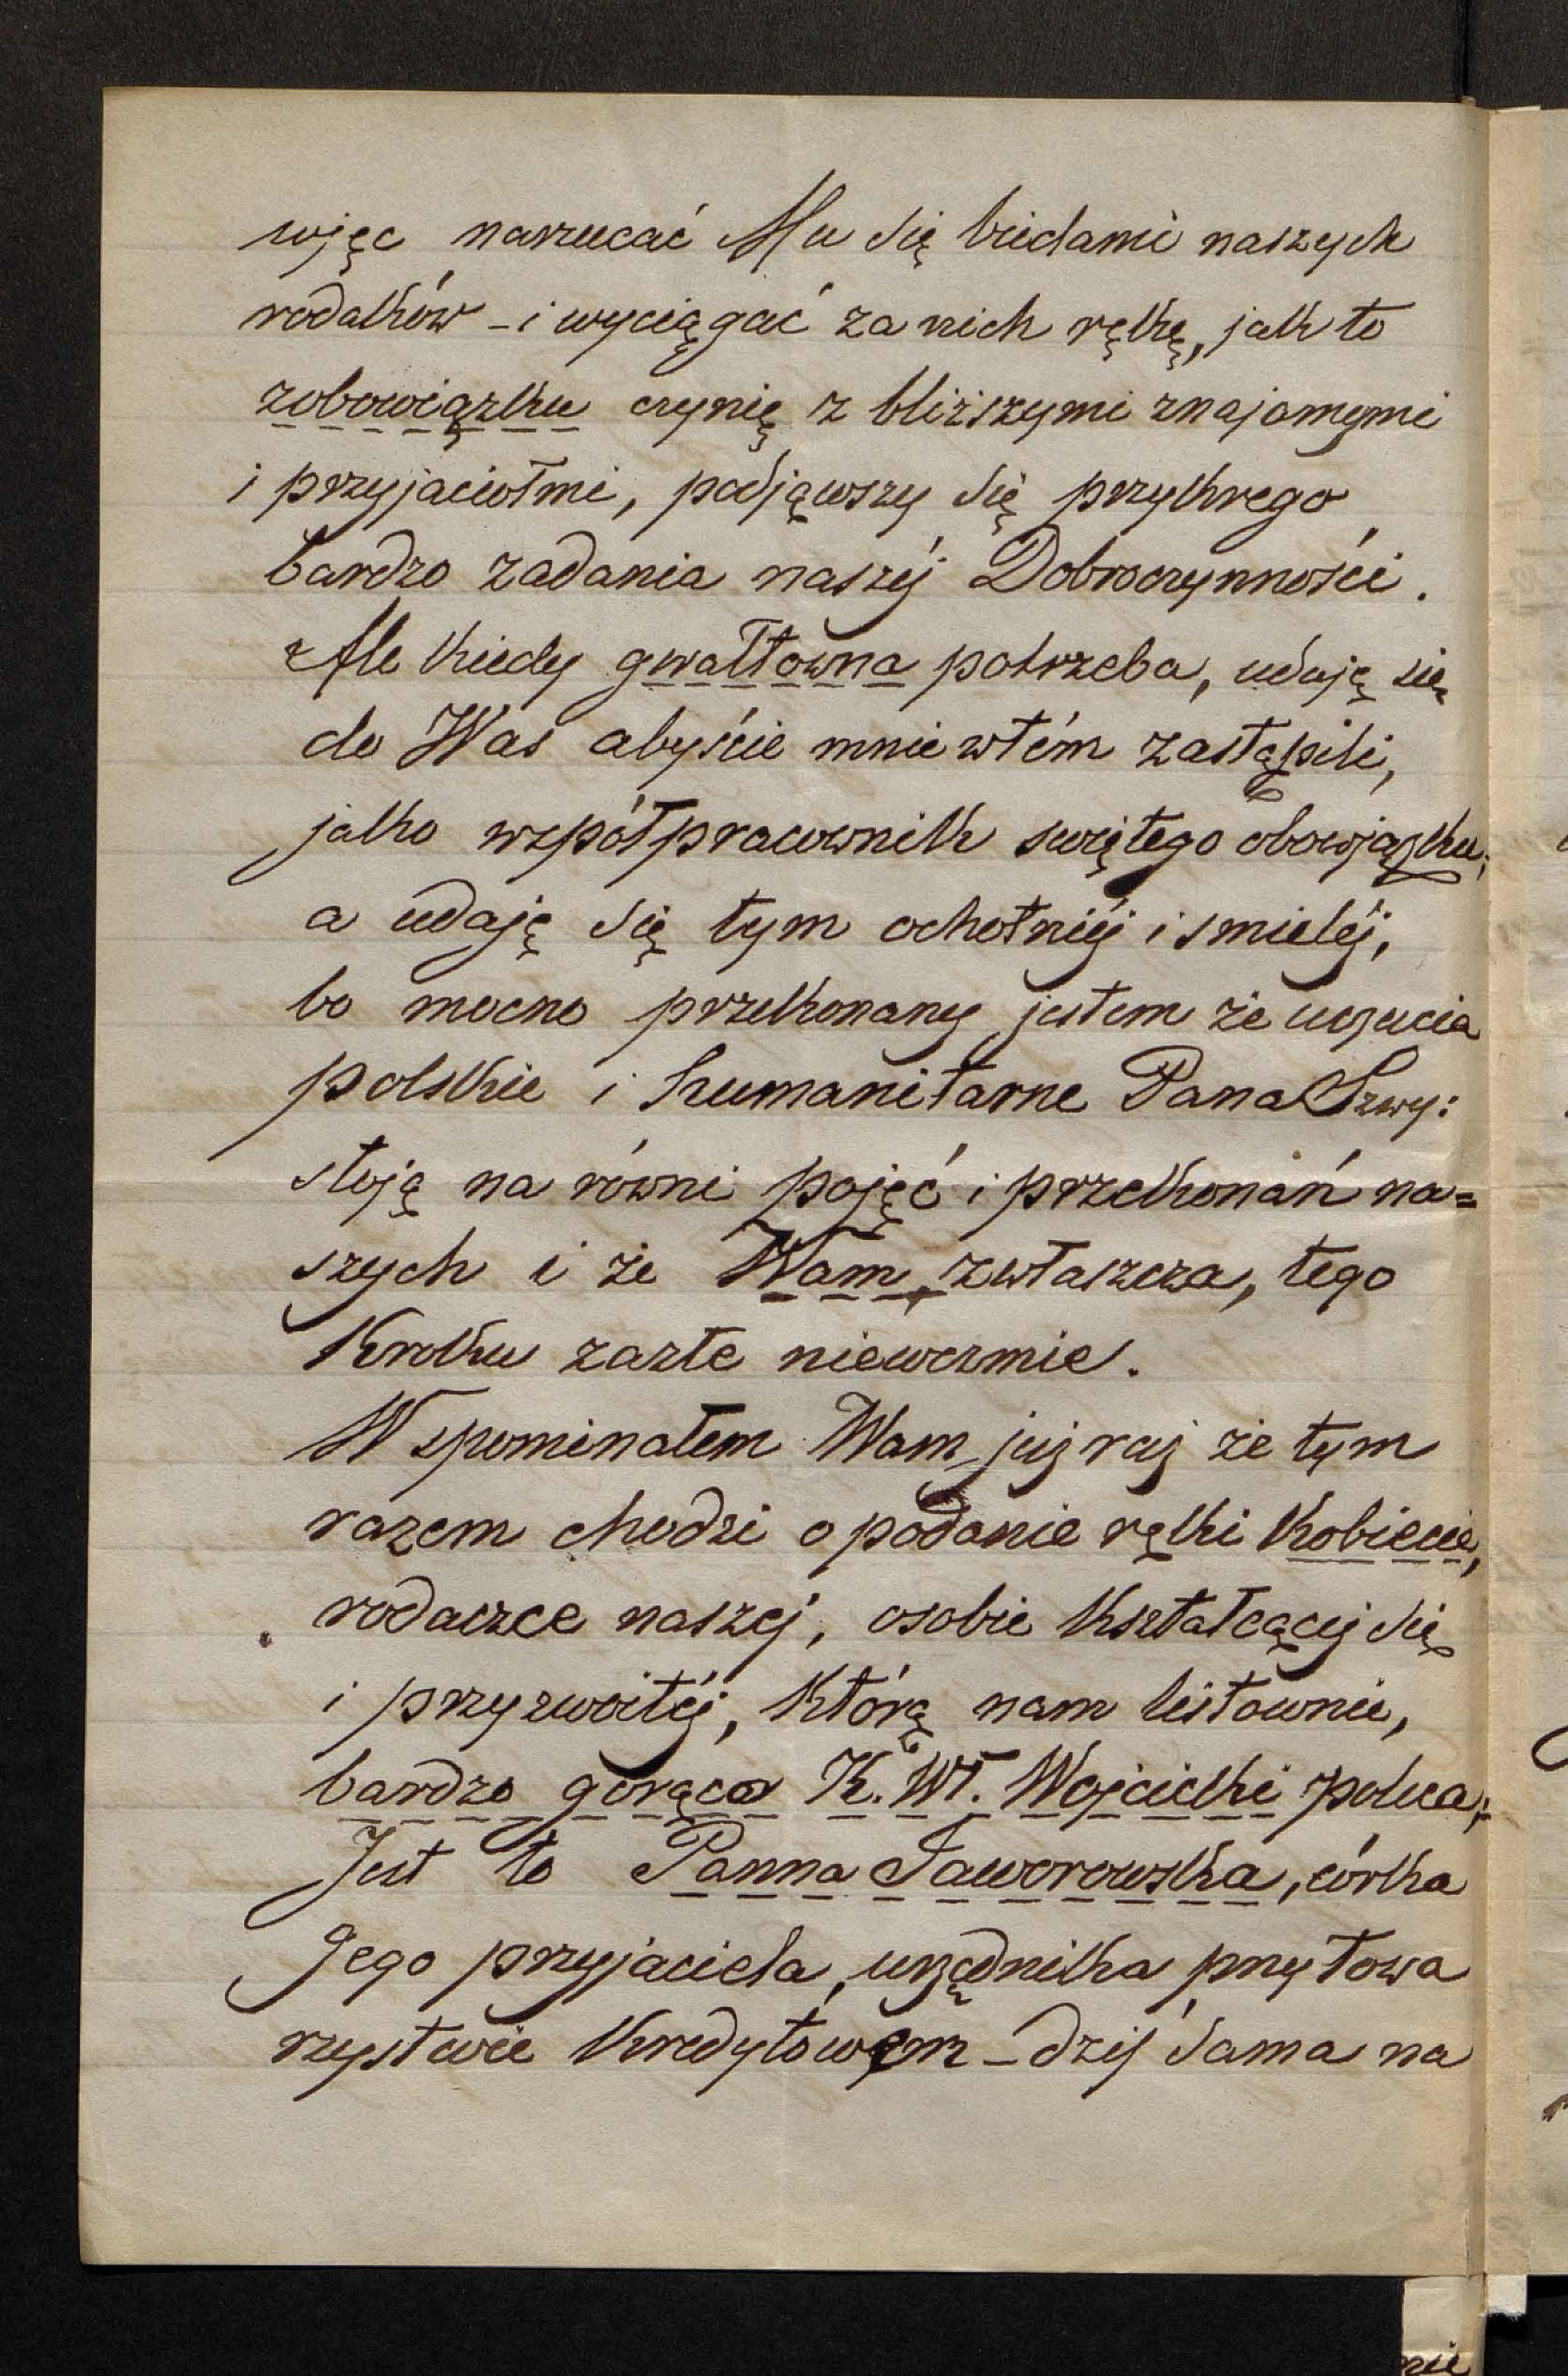 więc narzucać Mu się biedami naszych
rodaków – i wyciągać za nich rękę, jak to
zobowiązku czynię z bliższymi znajomymi
i przyjaciołmi, podjąwszy się przykrego
bardzo zadania naszéj Dobroczynności.
Ale kiedy gwałtowna potrzeba, udaję się
do Was abyście mnie w tém zastąpili,
jako współpracownik swiętego obowjązku;
a udaję się tym ochotniéj i smieléj,
bo mocno przekonany jestem że uczucia
polskie i humanitarne Pana Szwy:
stoją na równi pojęć i przekonań na=
szych i że Wam, zwłaszcza, tego
Kroku zazłe niewezmie.
Wspominałem Wam już raz że tym
razem chodzi o podanie ręki Kobiecie,
rodaczce naszej, osobie Kształcącéj się
i przyzwoitéj, Którą nam listownie,
bardzo gorąco K. Wł. Wojcicki poleca;
Jest to Panna Jaworowska, córka
Jego przyjaciela, urzędnika przy Towa
rzystwie Kredytowem – dziś sama na
nie